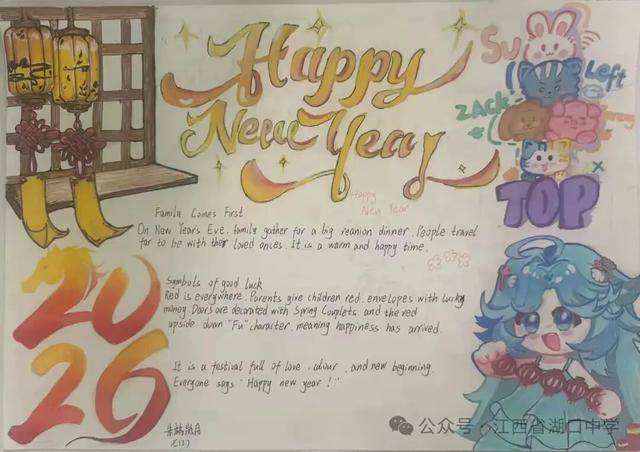 Happy
New Year
Su
Left
ZAck
TOP
Happy
New Year
Family Comes First
On New Years Eve. family gather for a big reanion dinner. People travel
far to be with their loved onces. It is a warm and happy time.
2026
Symbols of good luck
Red is everywhere. Parents give children red envelopes with lucky
money Doors are decorated with Spring Couplets and the red
upside down "Fu" character, meaning happiness has arrived.
It is a festival full of love, colour, and new beginning.
Everyone says "Happy new year!"
公众号·江西省湖口中学